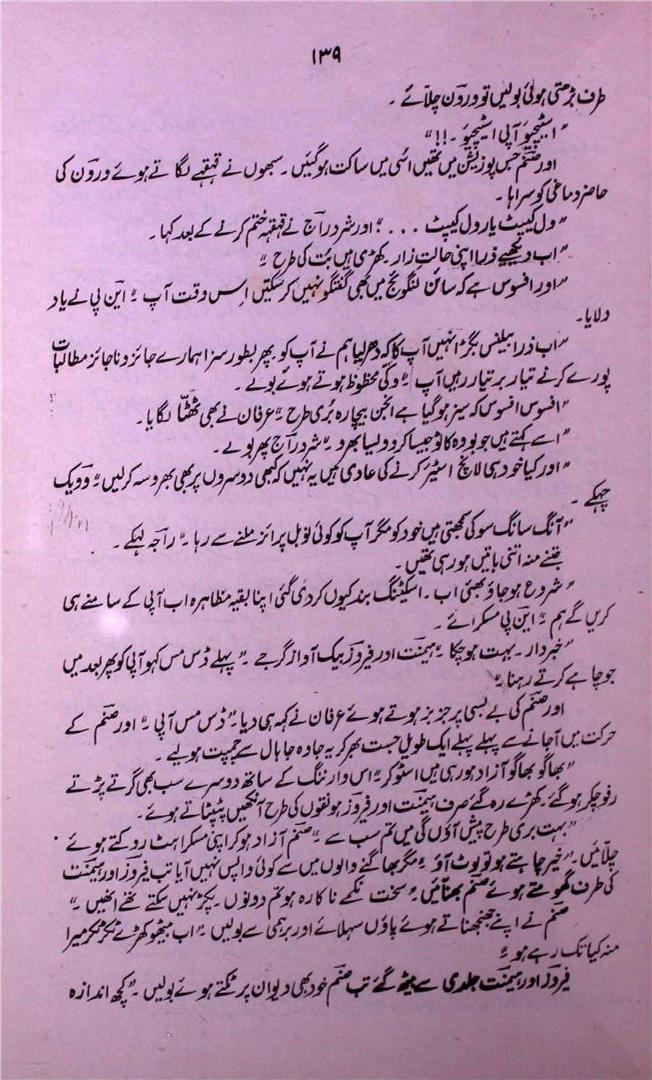 ۱۳۹
طرف بڑھتی ہوئی بولیں تو ورون چلّائے ۔
"اسٹیچیو آپی اسٹیچیو ۔!!"
اور صنم جس پوزیشن میں تھیں اسی میں ساکت ہوگئیں ۔ سبھوں نے قہقہے لگاتے ہوئے ورون کی
حاضر دماغی کو سراہا ۔
"ول کیپٹ یار ول کیپٹ ... " اور شردراج نے قہقہہ ختم کرنے کے بعد کہا ۔
"اب دیکھیے ذرا اپنی حالتِ زار ۔ کھڑی ہیں بت کی طرح ۔"
"اور افسوس ہے کہ سائن لنگویج میں بھی گفتگو نہیں کر سکتیں اس وقت آپ ۔" این پی نے یاد
دلایا ۔
"اب ذرا بیلنس بگڑا نہیں آپ کا کہ دھر لیا ہم نے آپ کو ۔ پھر بطور سزا ہمارے جائز و ناجائز مطالبات
پورے کرنے تیار بر تیار رہیں آپ ۔" وکی محظوظ ہوتے ہوئے بولے ۔
"افسوس افسوس کہ سیز ہوگیا ہے انجن بیچارہ بُری طرح ۔" عرفان نے بھی ٹھٹّا لگایا ۔
"اسے کہتے ہیں جو بووہ کاٹو جیسا کرو ویسا بھرو ۔" شردراج پھر بولے ۔
"اور کیا خود ہی لانچ اسٹیئر کرنے کی عادی ہیں یہ نہیں کہ کبھی دوسروں پر بھی بھروسہ کرلیں ۔" وویک
چہکے ۔
"آنگ سانگ سوکی سمجھتی ہیں خود کو مگر آپ کو کوئی نوبل پرائز ملنے سے رہا ۔" راجہ لہکے ۔
جتنے منہ اتنی باتیں ہو رہی تھیں ۔
"شروع ہوجاؤ بھئی اب ۔ اسکیٹنگ بند کیوں کر دی گئی اپنا بقیہ مظاہرہ اب آپی کے سامنے ہی
کریں گے ہم ۔" این پی مسکرائے ۔
"خبردار ۔ بہت ہوچکا ۔" ہیمنت اور فیروز بیک آواز گرجے ۔ "پہلے ڈس مس کہو آپی کو پھر بعد میں
جو چاہے کرتے رہنا ۔"
اور صنم کی بے بسی پر جز بز ہوتے ہوئے عرفان نے کہہ ہی دیا ۔ "ڈس مس آپی ۔" اور صنم کے
حرکت میں آجانے سے پہلے پہلے ایک طویل جست بھر کر یہ جا وہ جا ہال سے چمپت ہولیے ۔
"بھاگو بھاگو آزاد ہو رہی ہیں اسٹوکر ۔" اس وارننگ کے ساتھ دوسرے سب بھی گرتے پڑتے
رفوچکر ہوگئے ۔ کھڑے رہ گئے صرف ہیمنت اور فیروز ہونقوں کی طرح آنکھیں پٹپٹاتے ہوئے ۔
"بہت بری طرح پیش آؤں گی میں تم سب سے ۔" صنم آزاد ہو کر اپنی مسکراہٹ روکتے ہوئے
چلائیں ۔ "خیر چاہتے ہو تو لوٹ آؤ ۔" مگر بھاگنے والوں میں سے کوئی واپس نہیں آیا تب فیروز اور ہیمنت
کی طرف گھومتے ہوئے صنم بھنّائیں ۔ "سخت نکمے ناکارہ ہو تم دونوں ۔ پکڑ نہیں سکتے تھے انھیں ۔"
صنم نے اپنے جھنجھناتے ہوئے پاؤں سہلائے اور برہمی سے بولیں ۔ "اب بیٹھو کھڑے ٹکر ٹکر میرا
منہ کیا تک رہے ہو ۔"
فیروز اور ہیمنت جلدی سے بیٹھ گئے تب صنم خود بھی دیوان پر ٹکتے ہوئے بولیں ۔ "کچھ اندازہ